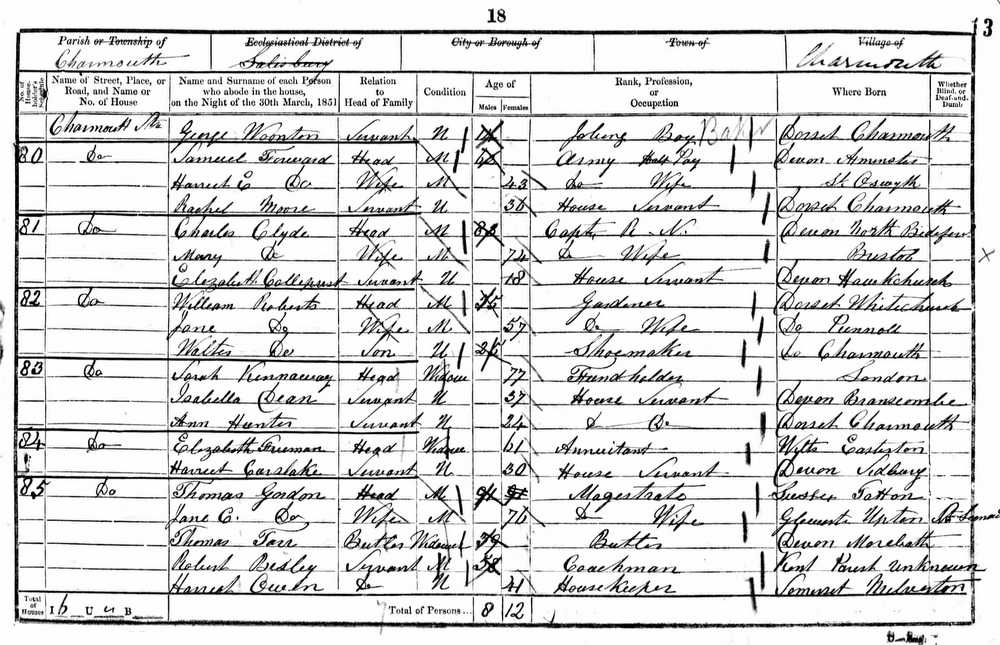 18
3
Parish or Township of Ecclesiastical District of City or Borough of Town of Village of
Charmouth Salisbury Charmouth
No. of House-holder's Schedule Name of Street, Place, or Road, and Name or No. of House Name and Surname of each Person who abode in the house, on the Night of the 30th March, 1851 Relation to Head of Family Condition Age of Males Females Rank, Profession, or Occupation Where Born Whether Blind, or Deaf-and-Dumb
Charmouth George Woonton Servant U Jobing Boy Dorset Charmouth
80 Do Samuel Forward Head M Army Half Pay Devon Axminster
Harriet E Do Wife M 43 Do Wife St Oswyth
Rachel Moore Servant U 36 House Servant Dorset Charmouth
81 Do Charles Clyde Head M 83 Captn R. N. Devon North Bideford
Mary Do Wife M 74 Do Wife Bristol
Elizabeth Servant U 18 House Servant Devon Hawkchurch
82 Do William Roberts Head M Gardener Dorset Whitchurch
Jane Do Wife M 57 Do Wife Do
Walter Do Son U 26 Shoemaker Do Charmouth
83 Do Sarah Kennaway Head Widow 77 Fundholder London
Isabella Dean Servant U 37 House Servant Devon Branscombe
Ann Hunter Servant U 24 Do Do Dorset Charmouth
84 Do Elizabeth Freeman Head Widow 61 Annuitant Wilts Easterton
Harriet Carslake Servant U 30 House Servant Devon Sidbury
85 Do Thomas Gordon Head M Magestrate Sussex
Jane C. Do Wife M 76 Do Wife Upton
Thomas Tarr Butler Widower 39 Butler Devon Morebath
Robert Bisley Servant M 38 Coachman Kent Parish Unknown
Harriet Owen Do U 41 Housekeeper Somerset Milverton
Total of Houses I 6 U B Total of Persons... 8 12